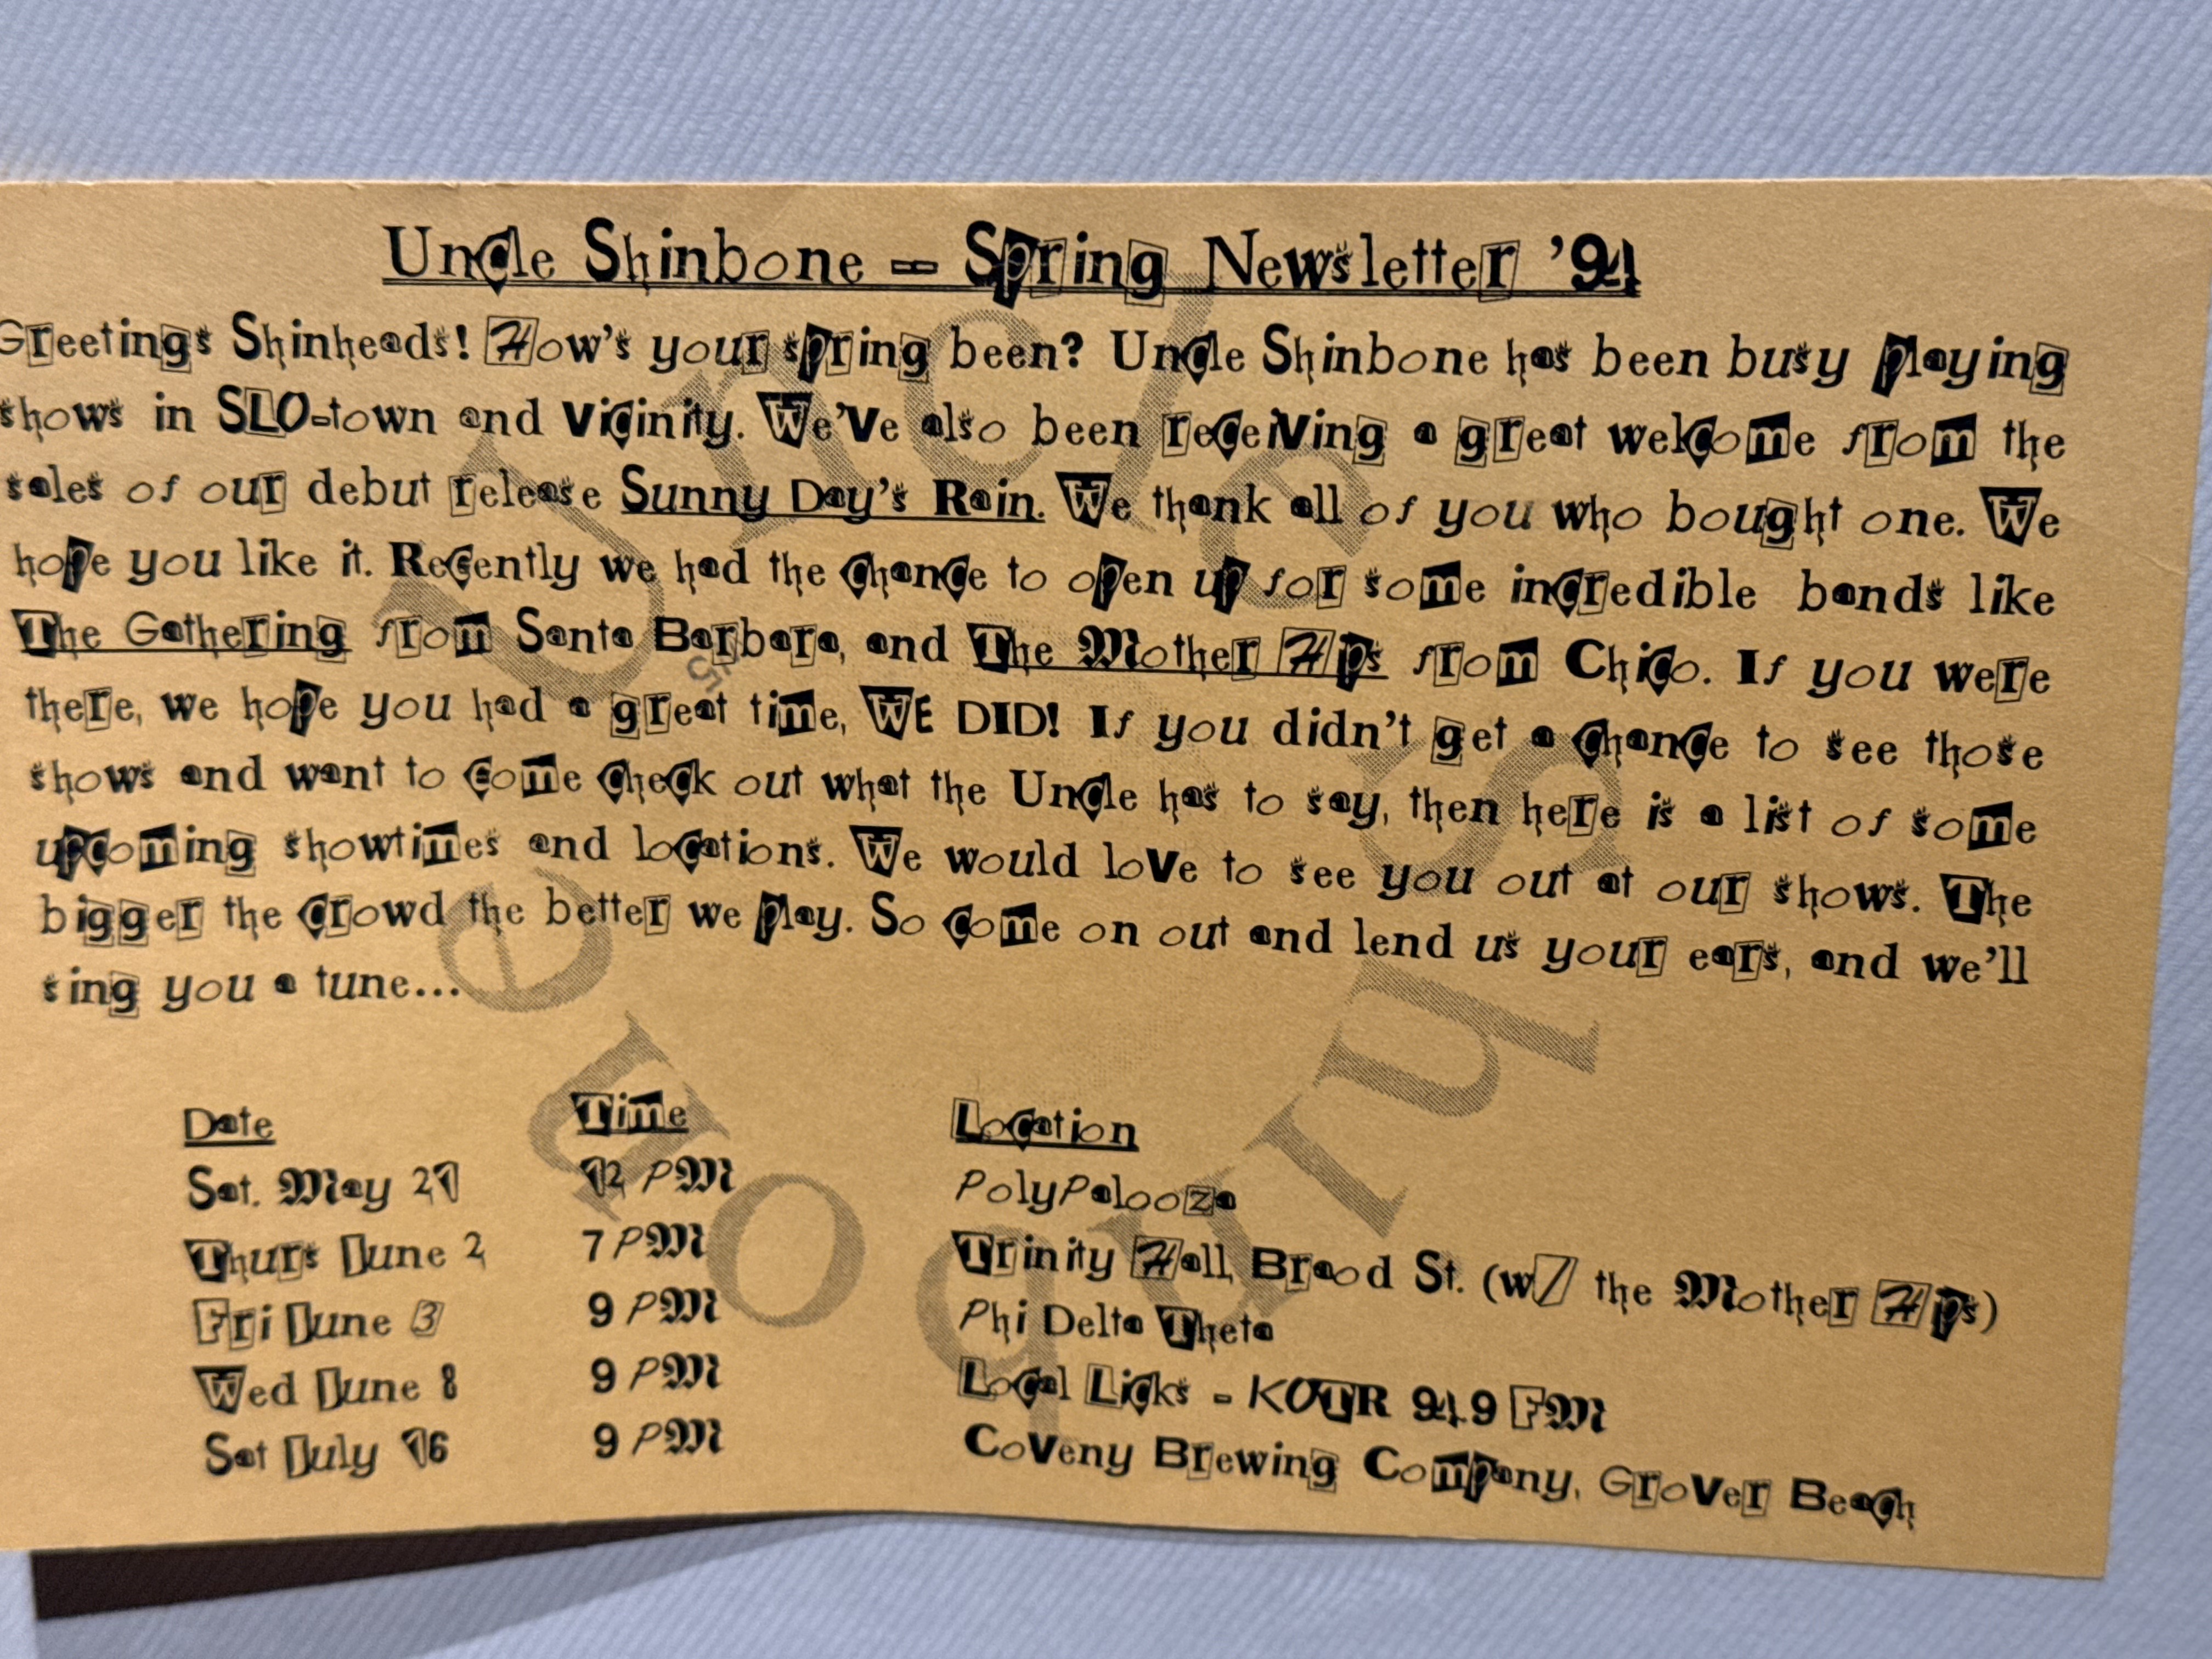 Uncle Shinbone -- Spring Newsletter '94
Greetings Shinheads! How's your spring been? Uncle Shinbone has been busy playing
shows in SLO-town and vicinity. We've also been receiving a great welcome from the
sales of our debut release Sunny Day's Rain. We thank all of you who bought one. We
hope you like it. Recently we had the chance to open up for some incredible bands like
The Gathering from Santa Barbara, and The Mother Hips from Chico. If you were
there, we hope you had a great time, WE DID! If you didn't get a chance to see those
shows and want to come check out what the Uncle has to say, then here is a list of some
upcoming showtimes and locations. We would love to see you out at our shows. The
bigger the crowd the better we play. So come on out and lend us your ears, and we'll
sing you a tune...
Date Time Location
Sat. May 21 12 PM PolyPalooza
Thurs June 2 7 PM Trinity Hall, Broad St. (w/ the Mother Hips)
Fri June 3 9 PM Phi Delta Theta
Wed June 8 9 PM Local Licks - KOTR 94.9 FM
Sat July 16 9 PM Coveny Brewing Company, Grover Beach